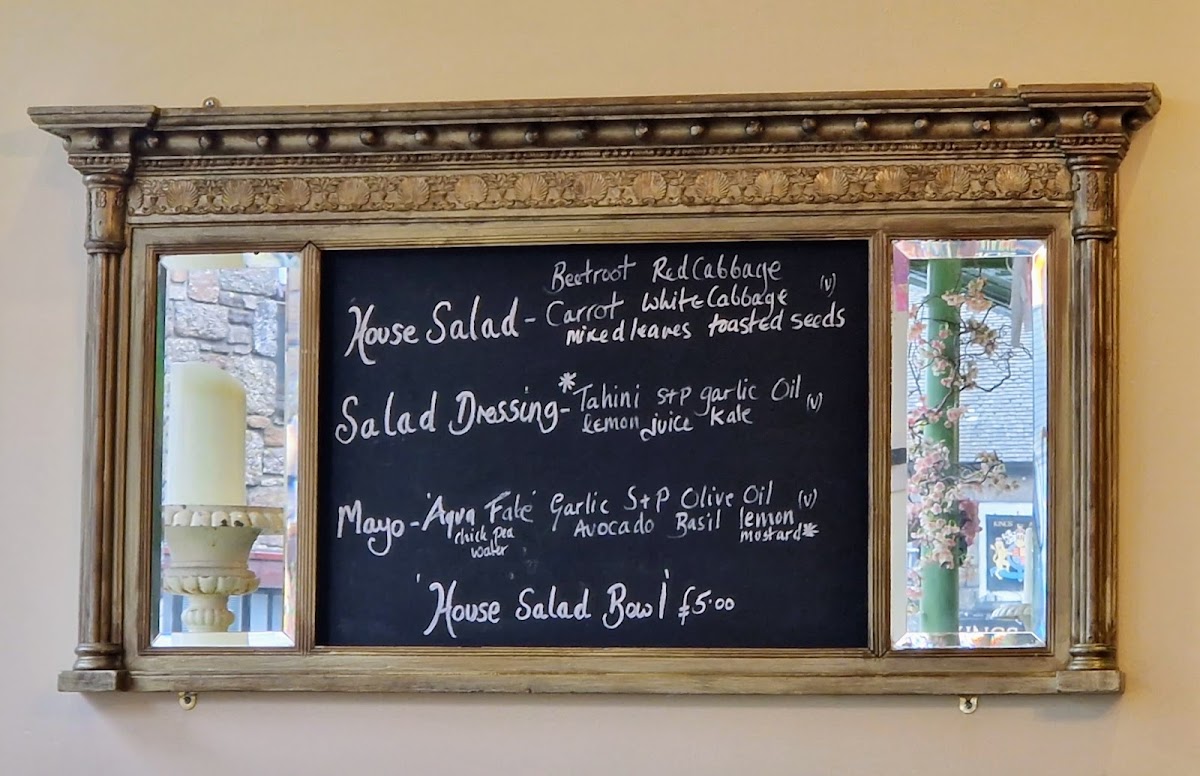 Beetroot Red Cabbage
House Salad - Carrot White Cabbage (v)
mixed leaves toasted seeds
Salad Dressing* - Tahini S+P garlic Oil (v)
lemon juice Kale
Mayo - 'Aqua Fabe' Garlic S+P Olive Oil (v)
chick pea water Avocado Basil lemon
mustard*
'House Salad Bowl' £5.00
KINGS
KINGS